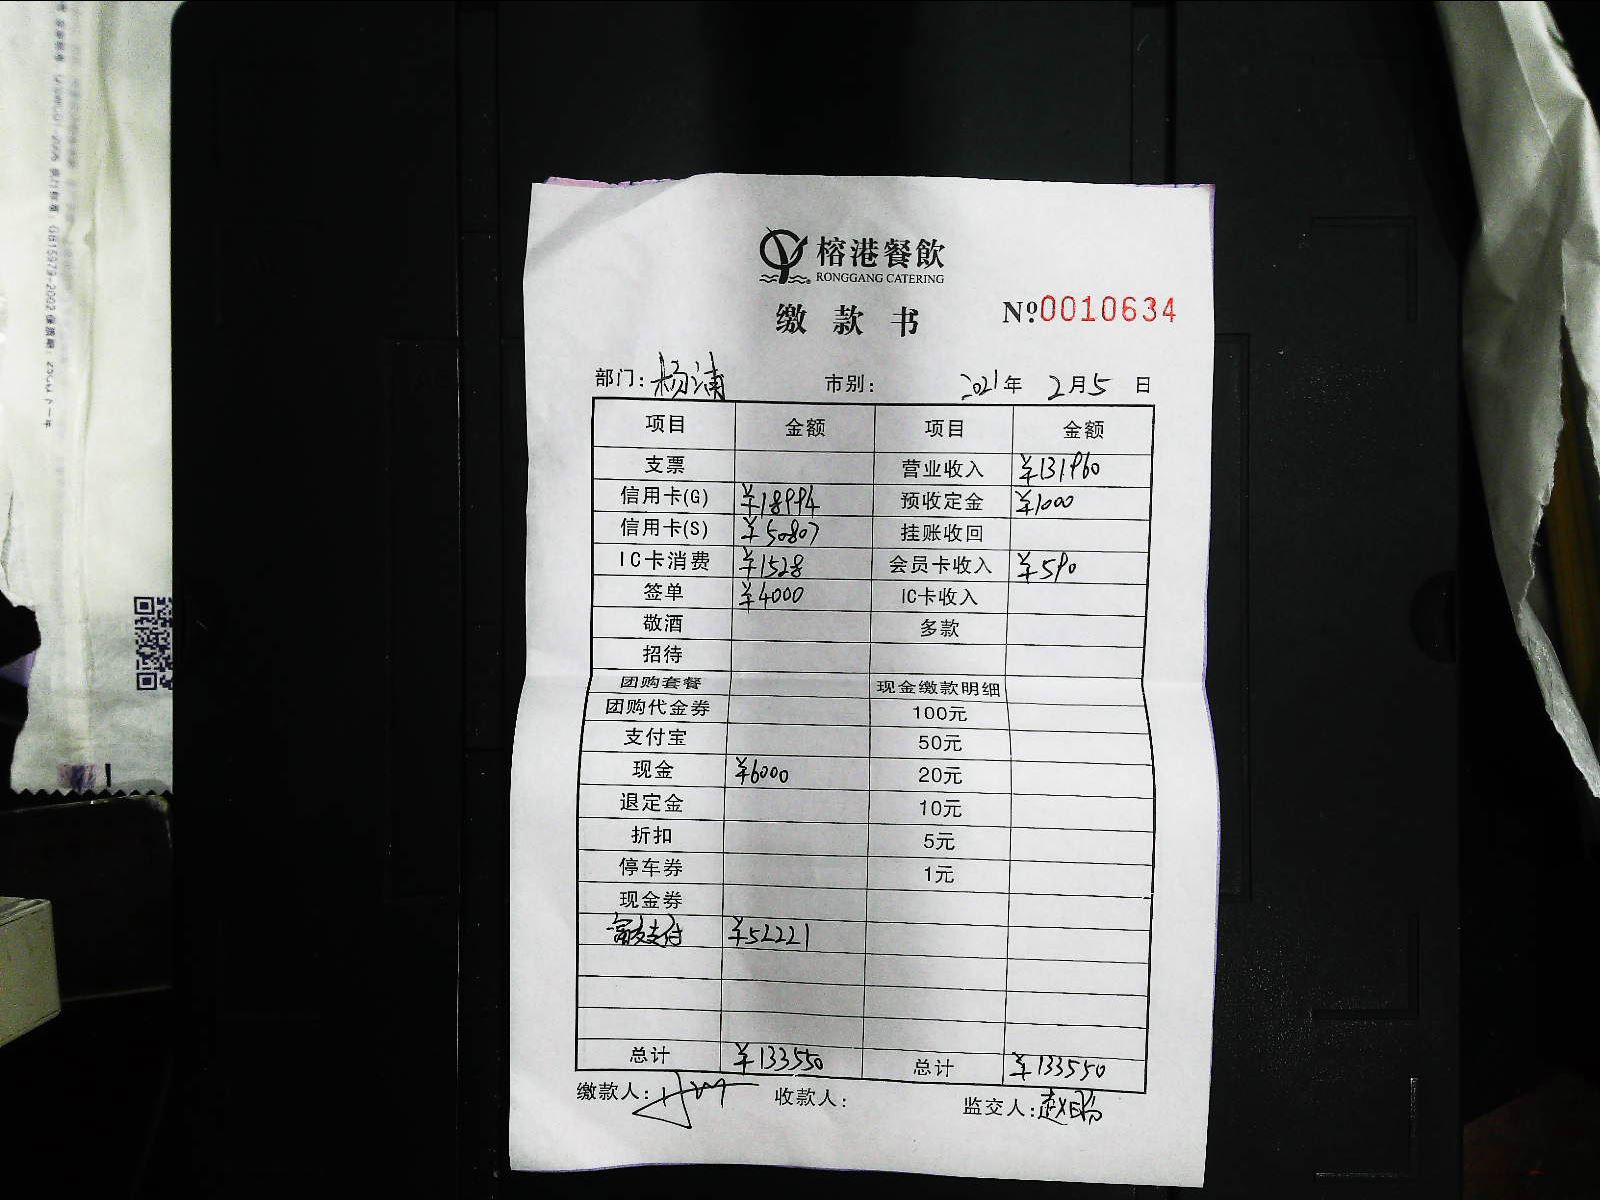 榕港餐飲
RONGGANG CATERING
缴款书 Nº0010634
部门: 杨浦 市别: 2021年 2月5日
项目 金额 项目 金额
支票 营业收入 ¥131960
信用卡(G) ¥18994 预收定金 ¥1000
信用卡(S) ¥50807 挂账收回
IC卡消费 ¥1528 会员卡收入 ¥590
签单 ¥4000 IC卡收入
敬酒 多款
招待
团购套餐 现金缴款明细
团购代金券 100元
支付宝 50元
现金 ¥6000 20元
退定金 10元
折扣 5元
停车券 1元
现金券
富友支付 ¥52221
总计 ¥133550 总计 ¥133550
缴款人: 收款人: 监交人:
GB15979-2002